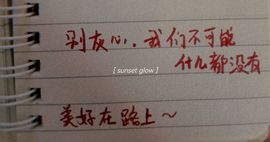 别灰心，我们不可能
什么都没有
[ sunset glow ]
美好在路上~